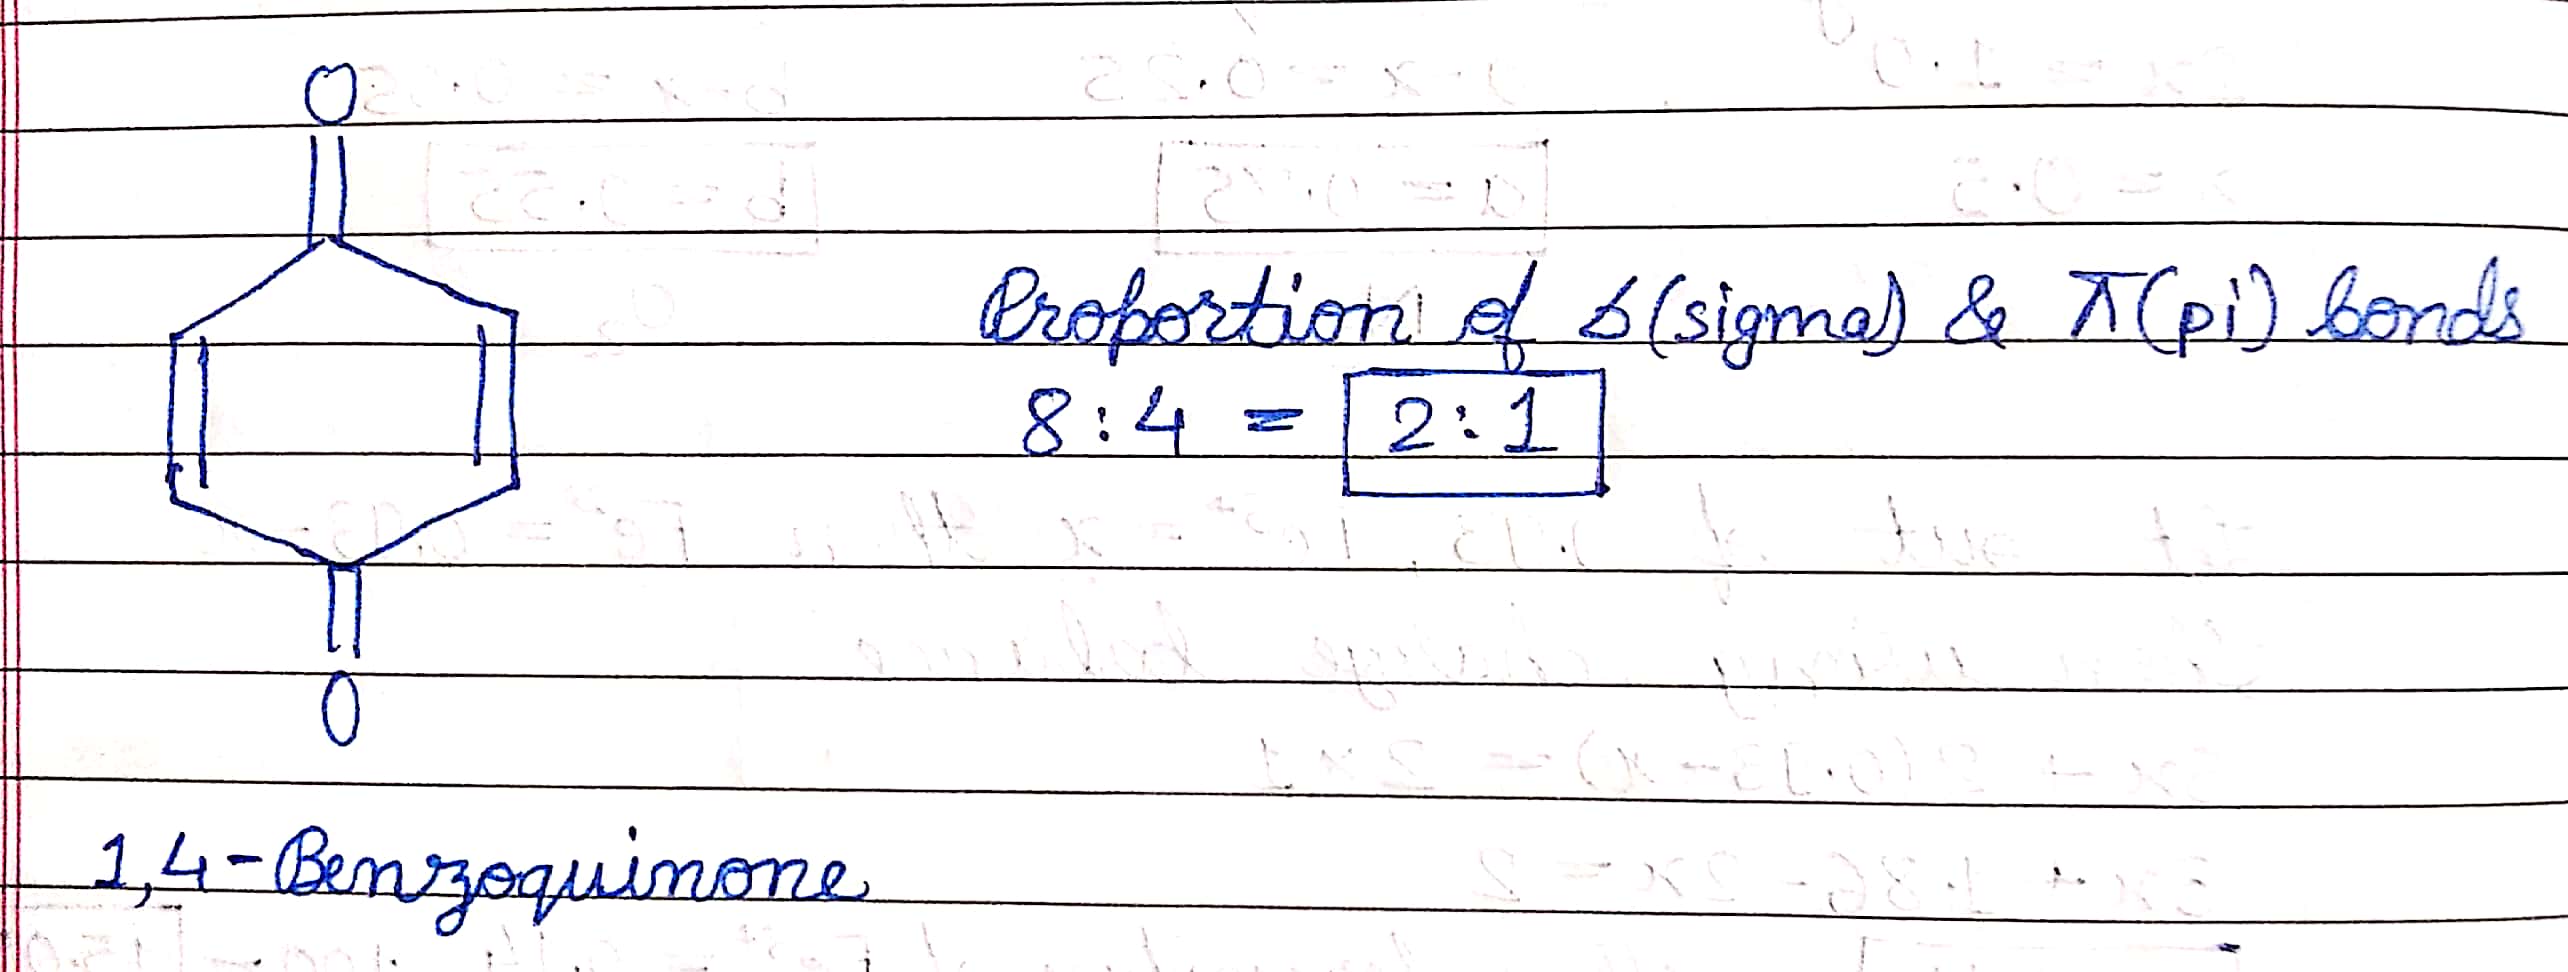 O
Proportion of σ(sigma) & π(pi) bonds
8:4 = 2:1
O
1,4-Benzoquinone